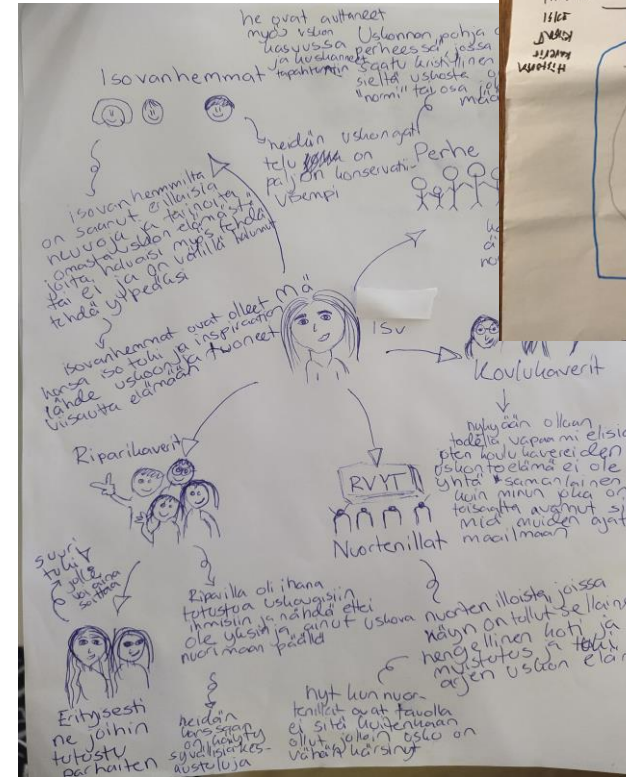 he ovat auttaneet
myös uskon
kasvussa
ja kuskanneet
tapahtumiin
Uskonnon pohja
perheessä, jossa
saatu kristillinen
sieltä uskosta
"normi" tai osa
Isovanhemmat
heidän uskongat
telu on
paljon konservatii-
visempi
Perhe
isovanhemmilta
on saanut erillaisia
neuvoja ja tarinoita
omasta uskon elämästä
joita, haluaisi myös tehdä
tai ei ja on välillä halunnut
tehdä ylpeäksi
isovanhemmat ovat olleet
kanssa iso tuki ja inspiraation
lähde uskoon ja tuoneet
viisautta elämään
Mä
ISV
Koulukaverit
nykyään ollaan
todella vapaamielisiä
koulukavereiden
uskontoelämä ei ole
yhtä samanlainen
kuin minun joka on
toisaalta avannut
muiden ajat
maailmaan
Riparikaverit
RVYT
Nuortenillat
suuri
tuki
jolle
voi aina
soittaa
Erityisesti
ne joihin
tutustu
parhaiten
Riparilla oli ihana
tutustua uskovaisiin
ihmisiin ja nähdä ettei
ole yksin ja ainut uskova
nuori maan päällä
heidän
kanssaan
on käyty
syvällisiä kes-
kusteluja
nuorten illoista, joissa
käyn on tullut
hengellinen koti ja
muistutus ja tuki
arjen uskon
nyt kun nuor-
tenillat ovat tauolla
ei sitä kuitenkaan
ollut, jolloin usko on
vähän kärsinyt